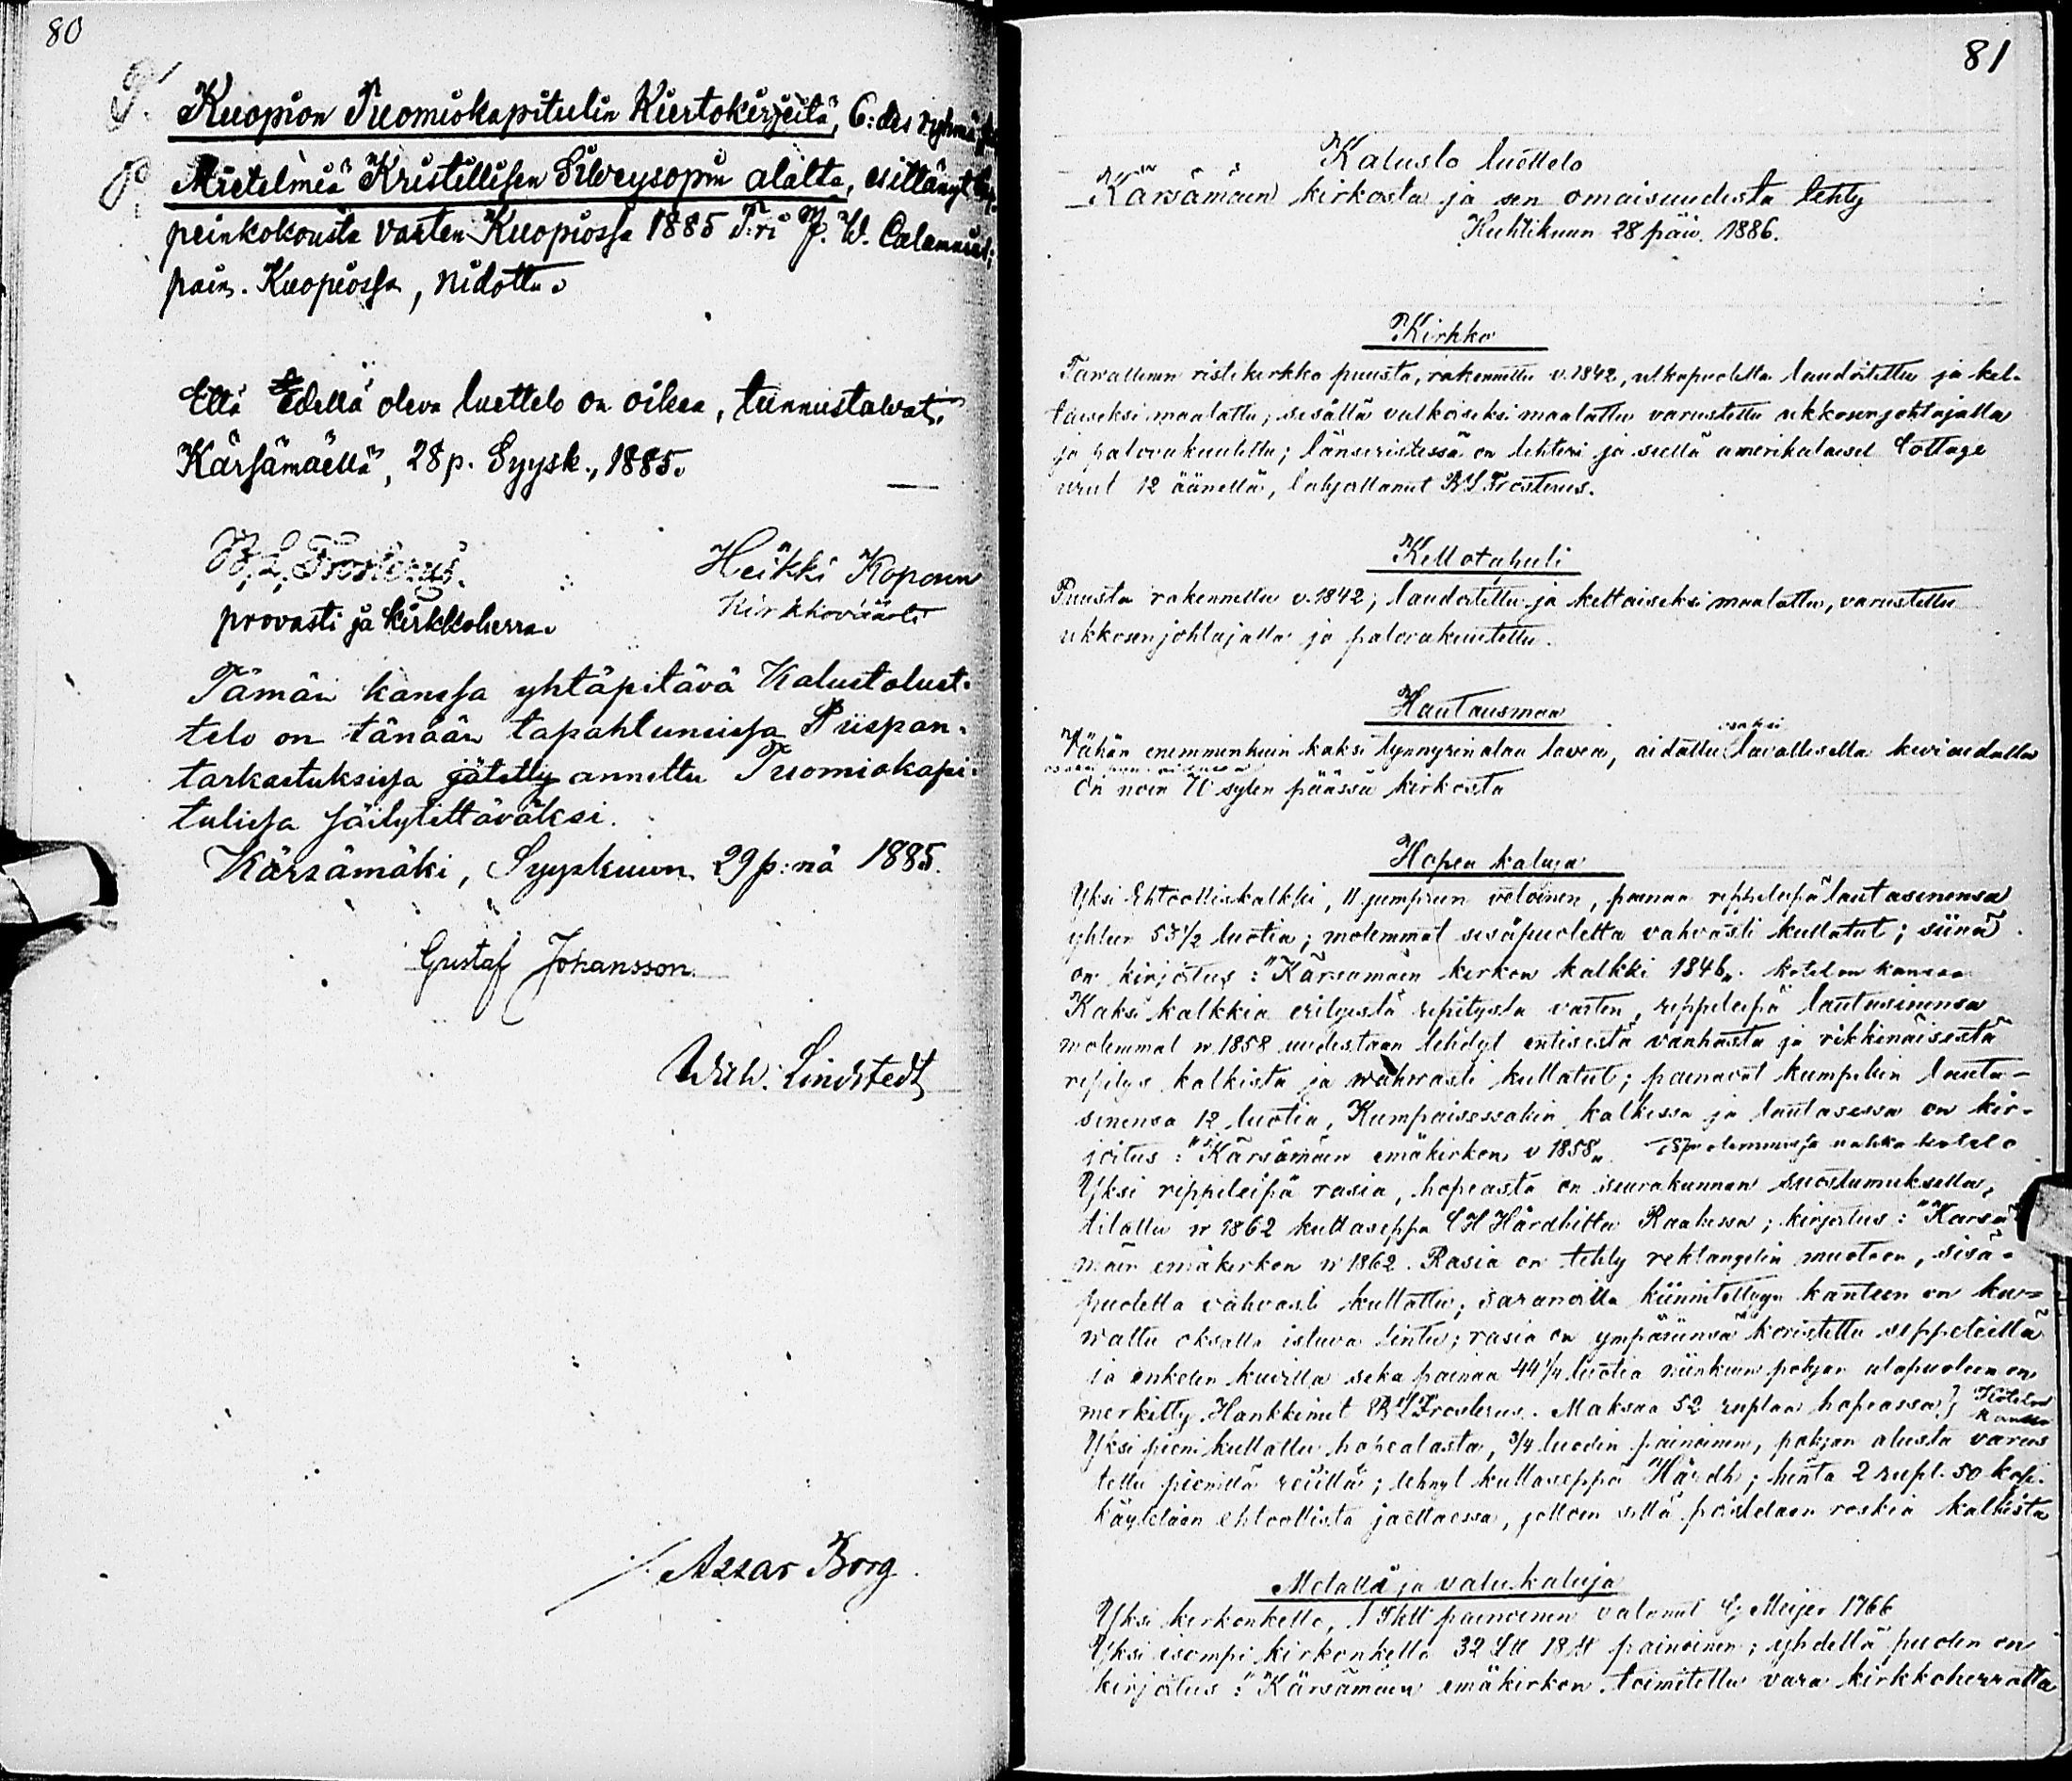 80
Kuopion Tuomiokapitulin Kiertokirjeitä, 6:des ryhmä
Mietelmiä Kristillisen Silveysopin alalta, esittänyt
peinkokousta varten Kuopiossa 1885 T:ri J. W. Calamnius;
pain. Kuopiossa, nidottu.
Että Edellä oleva luettelo on oikea, tunnustavat.
Kärsämäellä, 28 p. Syysk., 1885.
B. L. Frosterus.
provasti ja kirkkoherra.
Heikki Koponen
Kirkkoväärti
Tämän kanssa yhtäpitävä Kalustoluet-
telo on tänään tapahtuneissa Piispan-
tarkastuksissa jätetty annettu Tuomiokapi-
tulissa säilytettäväksi.
Kärsämäki, Syyskuun 29 p:nä 1885.
Gustaf Johansson.
Wilh. Lindstedt
/. Assar Borg.
81
Kalusto luettelo
Kärsämäen kirkosta ja sen omaisuudesta tehty
Huhtikuun 28 päiv. 1886.
Kirkko
Tavallinen ristikirkko puusta, rakennettu v. 1842, ulkopuolelta laudoitettu ja kel-
taiseksi maalattu, sisältä valkoiseksi maalattu varustettu ukkosenjohtajalla
ja palovakuutettu; länsiristissä on lehteri ja siellä amerikalaiset Cottage
urut 12 äänellä, lahjoittanut B L Frosterus.
Kellotapuli
Puusta rakennettu v. 1842; laudoitettu ja keltaiseksi maalattu, varustettu
ukkosenjohtajalla ja palovakuutettu.
Hautausmaa
osaksi
Vähän enemmän kuin kaksi tynnyrinalaa laven, aidattu tavallisella kiviaidalla
on noin 70 sylen päässä kirkosta
Hopea kaluja
Yksi Ehtoolliskalkki, 11 jumpruun vetoinen, painaa rippileipä lautasinensa
yhteen 53 1/2 luotia; molemmat sisäpuolelta vahvasti kullatut; siinä
on kirjoitus: "Kärsämäen kirkon kalkki 1846„. kotelon kanssa
Kaksi kalkkia erityistä ripitystä varten, rippileipä lautasinensa
molemmat v 1858 uudestaan tehdyt entisestä vanhasta ja rikkinäisestä
ripitys kalkista ja wahwasti kullatut; painavat kumpikin lauta-
sinensa 12 luotia, Kumpaisessakin kalkissa ja lautasessa on kir-
joitus: "Kärsämäen emäkirkon v 1858„. molemmissa nahka kotelo
Yksi rippileipä rasia, hopeasta on seurakunnan suostumuksella,
tilattu v 1862 kultaseppä C H Hårdhilta Raahessa; kirjoitus: "Kärsä
mäen emäkirkon v 1862. Rasia on tehty rektangelin muotoon, sisä-
puolelta vahvasti kullattu; saranoilla kiinnitettyyn kanteen on ku-
wattu oksalla istuva lintu; rasia on ympärinsä koristettu seppeleillä
ja enkelen kuvilla seka painaa 44 1/4 luotia niinkuin pohjan ulapuoleen on
merkitty. Hankkinut B L Frosterus. Maksaa 52 ruplaa hopeassa; Kotelon
kanssa
Yksi pieni kullattu hopealasta, 3/4 luodin painoinen, pohjan alusta varus
tettu pienillä reiillä; tehnyt kultaseppä Hårdh; hinta 2 rupl. 50 kop.
käytetään ehtoollista jaettaessa, jolloin sillä poistetaan roskia kalkista
Metalli ja valukaluja
Yksi kirkonkello, painoinen valanut G Meijer 1766
Yksi isompi kirkonkello 32 L℔ 18 ℔ painoinen; yhdellä puolen on
kirjoitus: "Kärsämäen emäkirkon toimitettu vara kirkkoherralta